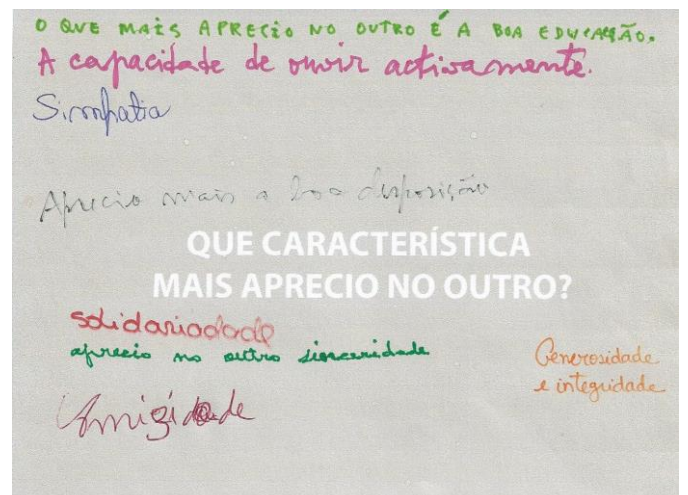 O QUE MAIS APRECIO NO OUTRO É A BOA EDUCAÇÃO.
A capacidade de ouvir activamente.
Simpatia
Aprecio mais a boa disposição
QUE CARACTERÍSTICA
MAIS APRECIO NO OUTRO?
solidariadade
aprecio no outro sinceridade
Generosidade
e integridade
Amigidade